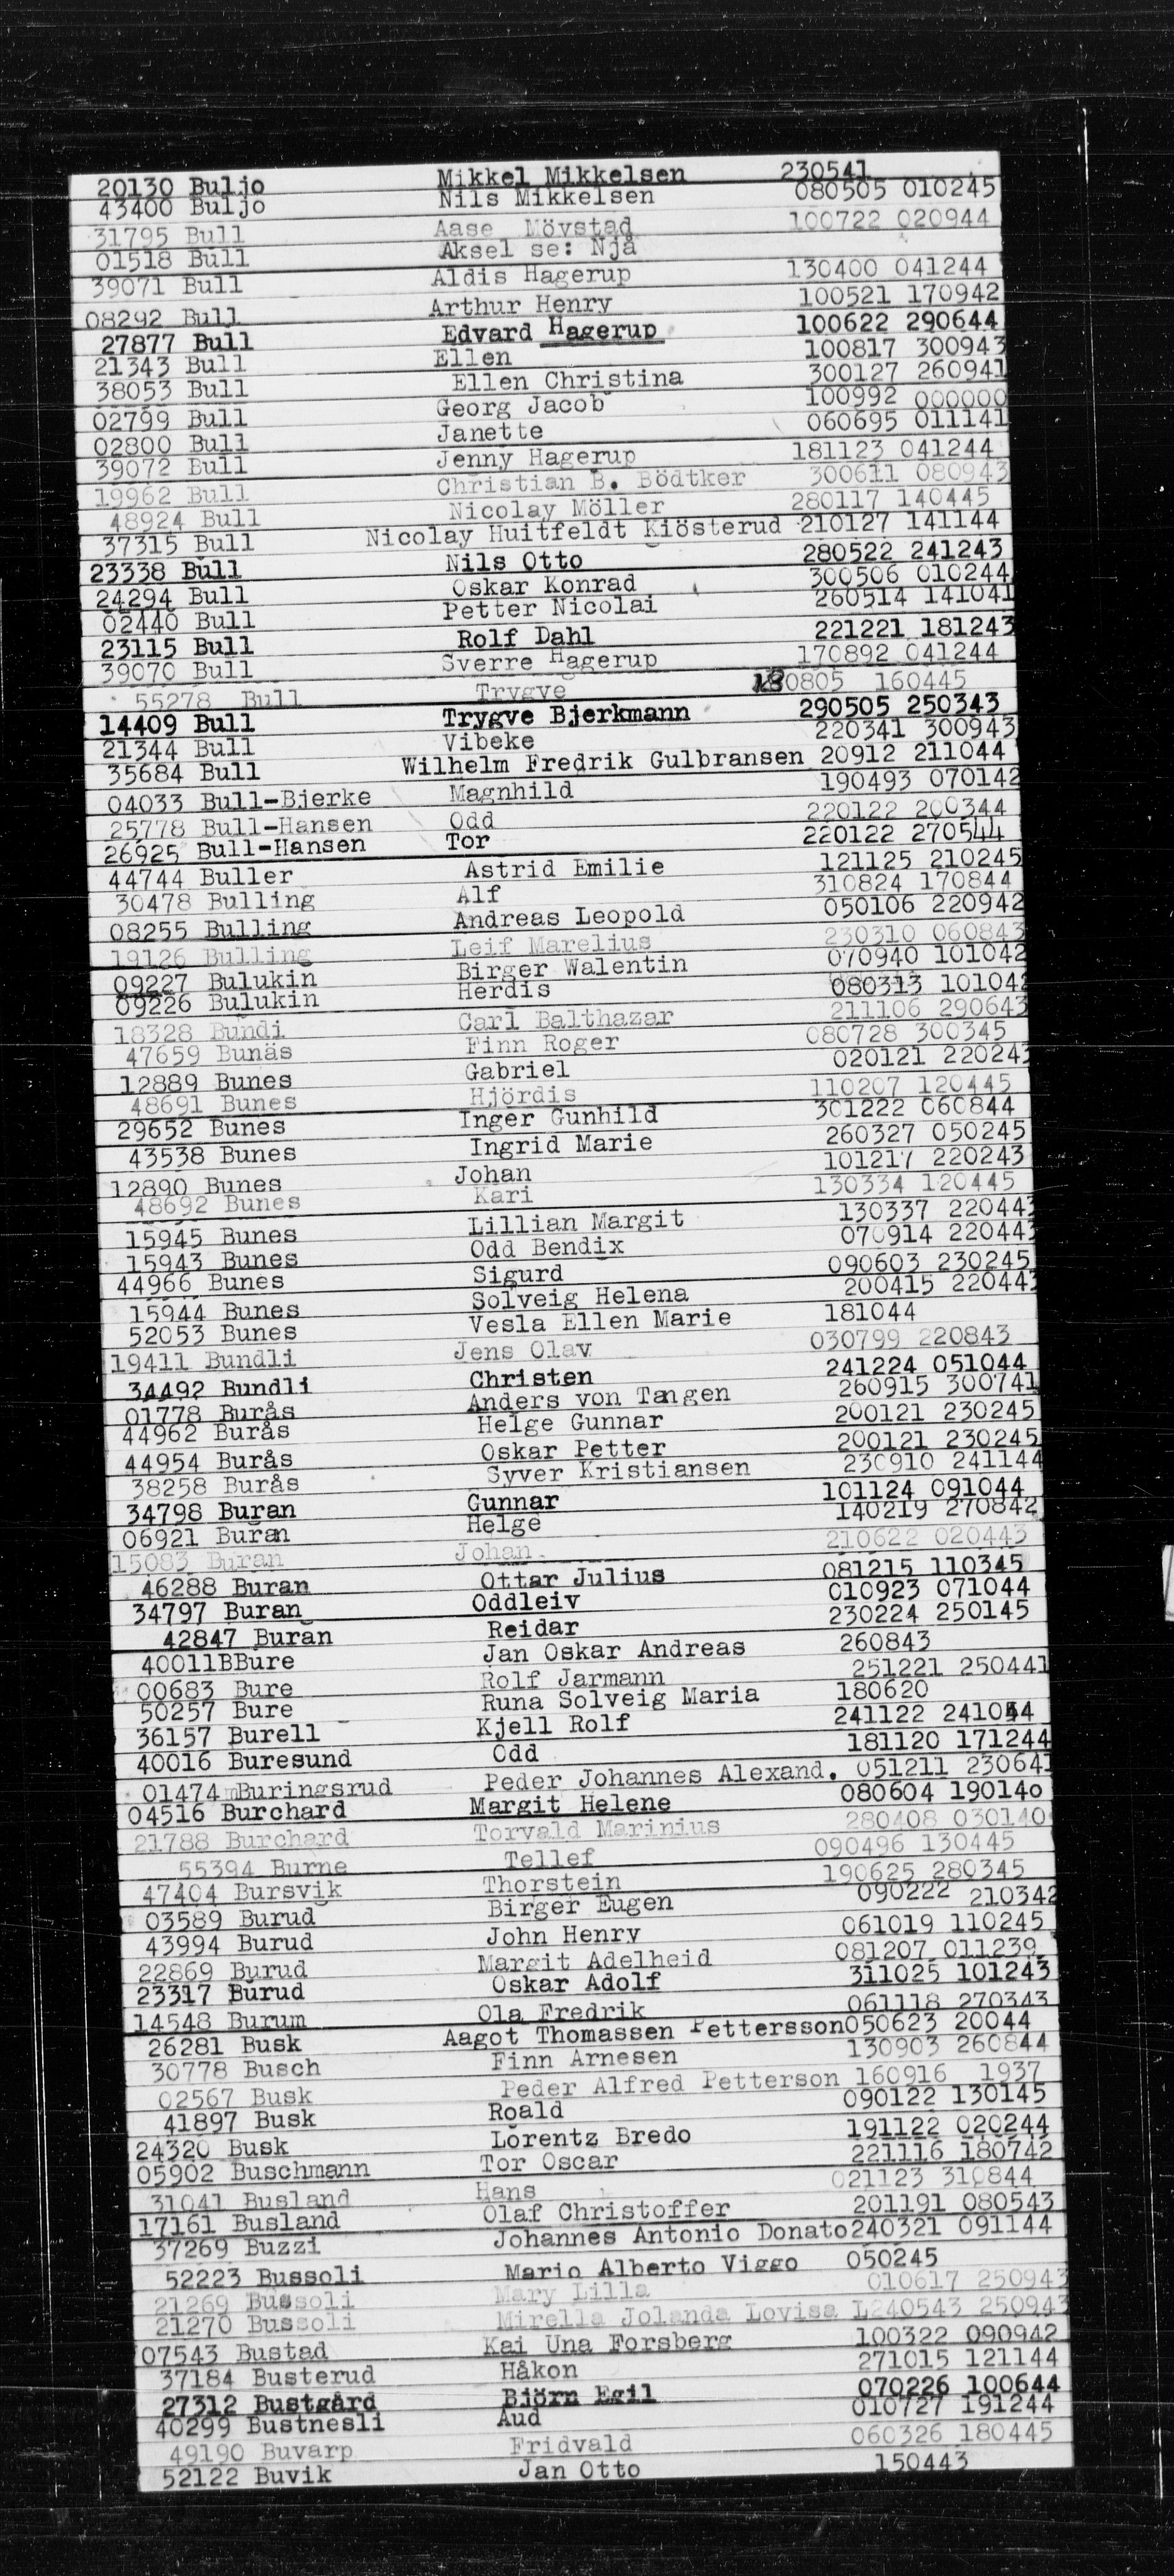 20130 Buljo Mikkel Mikkelsen 230541
43400 Buljo Nils Mikkelsen 080505 010245
31795 Bull Aase Mövstad 100722 020944
01518 Bull Aksel se: Njå
39071 Bull Aldis Hagerup 130400 041244
08292 Bull Arthur Henry 100521 170942
27877 Bull Edvard Hagerup 100622 290644
21343 Bull Ellen 100817 300943
38053 Bull Ellen Christina 300127 260941
02799 Bull Georg Jacob 100992 000000
02800 Bull Janette 060695 011141
39072 Bull Jenny Hagerup 181123 041244
19962 Bull Christian B. Bödtker 300611 080943
48924 Bull Nicolay Möller 280117 140445
37315 Bull Nicolay Huitfeldt Kiösterud 210127 141144
23338 Bull Nils Otto 280522 241243
24294 Bull Oskar Konrad 300506 010244
02440 Bull Petter Nicolai 260514 141041
23115 Bull Rolf Dahl 221221 181243
39070 Bull Sverre Hagerup 170892 041244
55278 Bull Trygve 180805 160445
14409 Bull Trygve Bjerkmann 290505 250343
21344 Bull Vibeke 220341 300943
35684 Bull Wilhelm Fredrik Gulbransen 20912 211044
04033 Bull-Bjerke Magnhild 190493 070142
25778 Bull-Hansen Odd 220122 200344
26925 Bull-Hansen Tor 220122 270544
44744 Buller Astrid Emilie 121125 210245
30478 Bulling Alf 310824 170844
08255 Bulling Andreas Leopold 050106 220942
19126 Bulling Leif Marelius 230310 060843
09227 Bulukin Birger Walentin 070940 101042
09226 Bulukin Herdis 080313 101042
18328 Bundi Carl Balthazar 211106 290643
47659 Bunäs Finn Roger 080728 300345
12889 Bunes Gabriel 020121 220243
48691 Bunes Hjördis 110207 120445
29652 Bunes Inger Gunhild 301222 060844
43538 Bunes Ingrid Marie 260327 050245
12890 Bunes Johan 101217 220243
48692 Bunes Kari 130334 120445
15945 Bunes Lillian Margit 130337 220443
15943 Bunes Odd Bendix 070914 220443
44966 Bunes Sigurd 090603 230245
15944 Bunes Solveig Helena 200415 220443
52053 Bunes Vesla Ellen Marie 181044
19411 Bundli Jens Olav 030799 220843
34492 Bundli Christen 241224 051044
01778 Burås Anders von Tangen 260915 300741
44962 Burås Helge Gunnar 200121 230245
44954 Burås Oskar Petter 200121 230245
38258 Burås Syver Kristiansen 230910 241144
34798 Buran Gunnar 101124 091044
06921 Buran Helge 140219 270842
15083 Buran Johan 210622 020443
46288 Buran Ottar Julius 081215 110345
34797 Buran Oddleiv 010923 071044
42847 Buran Reidar 230224 250145
40011BBure Jan Oskar Andreas 260843
00683 Bure Rolf Jarmann 251221 250441
50257 Bure Runa Solveig Maria 180620
36157 Burell Kjell Rolf 241122 241044
40016 Buresund Odd 181120 171244
01474 Buringsrud Peder Johannes Alexand. 051211 230641
04516 Burchard Margit Helene 080604 190140
21788 Burchard Torvald Marinius 280408 030140
55394 Burne Tellef 090496 130445
47404 Bursvik Thorstein 190625 280345
03589 Burud Birger Eugen 090222 210342
43994 Burud John Henry 061019 110245
22869 Burud Margit Adelheid 081207 011239
23317 Burud Oskar Adolf 311025 101243
14548 Burum Ola Fredrik 061118 270343
26281 Busk Aagot Thomassen Pettersson050623 20044
30778 Busch Finn Arnesen 130903 260844
02567 Busk Peder Alfred Petterson 160916 1937
41897 Busk Roald 090122 130145
24320 Busk Lorentz Bredo 191122 020244
05902 Buschmann Tor Oscar 221116 180742
31041 Busland Hans 021123 310844
17161 Busland Olaf Christoffer 201191 080543
37269 Buzzi Johannes Antonio Donato240321 091144
52223 Bussoli Mario Alberto Viggo 050245
21269 Bussoli Mary Lilla 010617 250943
21270 Bussoli Mirella Jolanda Lovisa L240543 250943
07543 Bustad Kai Una Forsberg 100322 090942
37184 Busterud Håkon 271015 121144
27312 Bustgård Björn Egil 070226 100644
40299 Bustnesli Aud 010727 191244
49190 Buvarp Fridvald 060326 180445
52122 Buvik Jan Otto 150443